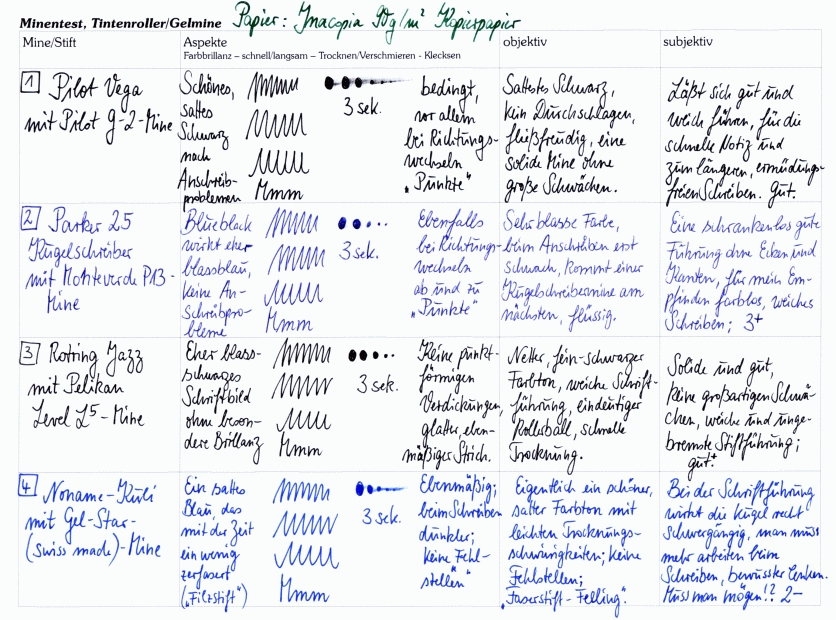 Minentest, Tintenroller/Gelmine Papier: Inacopia 90g/m² Kopierpapier
Mine/Stift
Aspekte
Farbbrillanz – schnell/langsam – Trocknen/Verschmieren - Klecksen
objektiv
subjektiv
1 Pilot Vega
mit Pilot G-2-Mine
Schönes,
sattes
Schwarz
nach
Anschreib-
problemen
Mmm
3 sek.
bedingt,
vor allem
bei Richtungs-
wechseln
„Punkte"
Sattestes Schwarz,
kein Durchschlagen,
fließfreudig, eine
solide Mine ohne
große Schwächen.
Läßt sich gut und
weich führen, für die
schnelle Notiz und
zum längeren, ermüdungs-
freien Schreiben. Gut.
2 Parker 25
Kugelschreiber
mit Monteverde P13-
Mine
Blueblack
wirkt eher
blassblau,
keine An-
schreibpro-
bleme
Mmm
3 sek.
Ebenfalls
bei Richtungs-
wechseln
ab und zu
„Punkte"
Sehr blasse Farbe,
beim Anschreiben erst
schwach, kommt einer
Kugelschreibermine am
nächsten, flüssig.
Eine schrankenlos gute
Führung ohne Ecken und
Kanten, für mein Em-
pfinden farblos, weiches
Schreiben; 3+
3 Rotring Jazz
mit Pelikan
Level L5-Mine
Eher blass-
schwarzes
Schriftbild
ohne beson-
dere Brillanz
Mmm
3 sek.
Keine punkt-
förmigen
Verdickungen,
glatter, eben-
mäßiger Strich.
Netter, fein-schwarzer
Farbton, weiche Schrift-
führung, eindeutiger
Rollerball, schnelle
Trocknung.
Solide und gut,
keine großartigen Schwä-
chen, weiche und unge-
bremste Stiftführung;
gut+
4 Noname-Kuli
mit Gel-Star-
(swiss made)-Mine
Ein sattes
Blau, das
mit der Zeit
ein wenig
zerfasert
(„Filzstift")
Mmm
3 sek.
Ebenmäßig;
beim Schreiben
dunkler;
keine Fehl-
stellen"
Eigentlich ein schöner,
satter Farbton mit
leichten Trocknungs-
schwierigkeiten; keine
Fehlstellen;
„Faserstift-Felling".
Bei der Schriftführung
wirkt die Kugel recht
schwergängig, man muss
mehr arbeiten beim
Schreiben, bewusster lenken.
Muss man mögen!? 2-